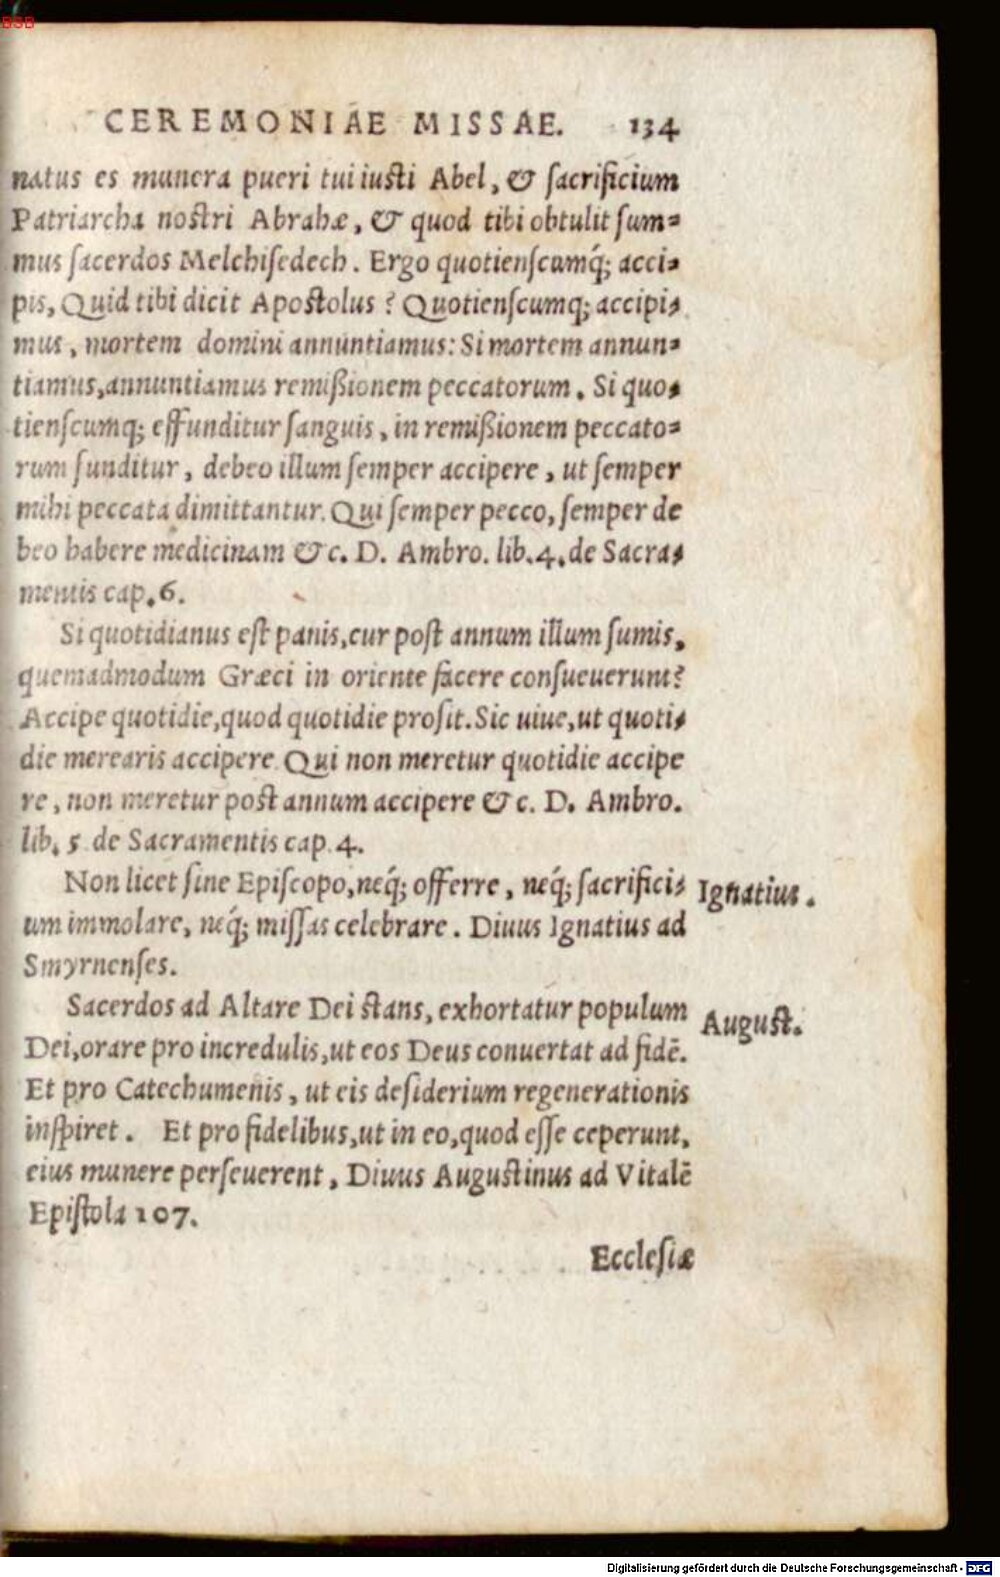 BSB
CEREMONIAE MISSAE. 134
natus es munera pueri tui iusti Abel, & sacrificium
Patriarcha nostri Abrahæ, & quod tibi obtulit sum-
mus sacerdos Melchisedech. Ergo quotienscumq́; acci-
pis, Quid tibi dicit Apostolus? Quotienscumq; accipi-
mus, mortem domini annuntiamus: Si mortem annun-
tiamus, annuntiamus remißionem peccatorum. Si quo-
tienscumq; effunditur sanguis, in remißionem peccato-
rum funditur, debeo illum semper accipere, ut semper
mihi peccata dimittantur. Qui semper pecco, semper de
beo habere medicinam & c. D. Ambro. lib. 4. de Sacra-
mentis cap. 6.
Si quotidianus est panis, cur post annum illum sumis,
quemadmodum Græci in oriente facere consueuerunt?
Accipe quotidie, quod quotidie prosit. Sic uiue, ut quoti-
die merearis accipere. Qui non meretur quotidie accipe
re, non meretur post annum accipere & c. D. Ambro.
lib. 5 de Sacramentis cap. 4.
Non licet sine Episcopo, neq́; offerre, neq́; sacrifici-
um immolare, neq́; missas celebrare. Diuus Ignatius ad
Smyrnenses.
Ignatius.
Sacerdos ad Altare Dei stans, exhortatur populum
Dei, orare pro incredulis, ut eos Deus conuertat ad fidē.
Et pro Catechumenis, ut eis desiderium regenerationis
inspiret. Et pro fidelibus, ut in eo, quod esse ceperunt,
eius munere perseuerent, Diuus Augustinus ad Vitalē
Epistola 107.
August.
Ecclesiæ
Digitalisierung gefördert durch die Deutsche Forschungsgemeinschaft - DFG